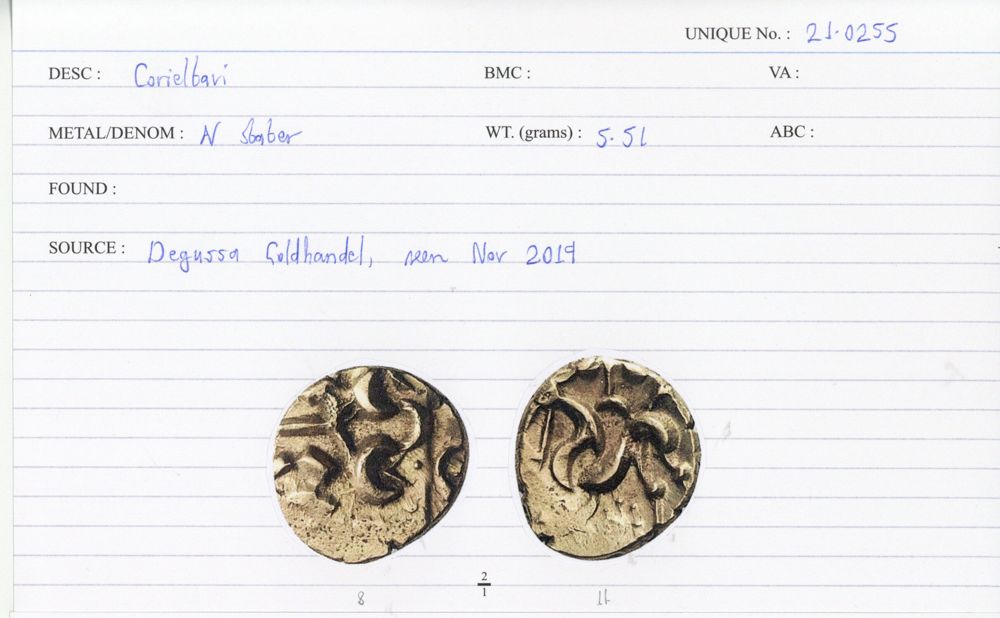 UNIQUE No. : 21·0255
DESC : Corieltavi BMC : VA :
METAL/DENOM : N stater WT. (grams) : 5.51 ABC :
FOUND :
SOURCE : Degussa Goldhandel, seen Nov 2019
2
1
8 11